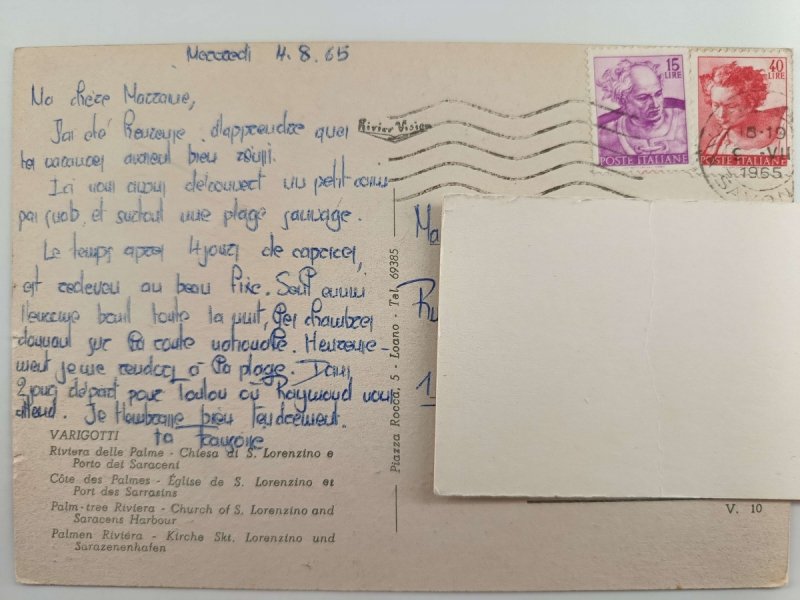 Mercredi 4.8.65
Ma chère Marraine,
J'ai été heureuse d'apprendre que
tes vacances avaient bien réussi.
Ici nous avons découvert un petit
pas mal, et surtout une plage sauvage.
Le temps après 4 jours de caprices,
est redevenu au beau fixe. Seul ennui
énorme bruit toute la nuit, les chambres
donnant sur la route nationale. Heureuse-
ment je me rendors à la plage. Dans
2 jours départ pour Toulon où Raymond nous
attend. Je t'embrasse bien tendrement.
ta Françoise
VARIGOTTI
Riviera delle Palme - Chiesa di S. Lorenzino e
Porto dei Saraceni
Côte des Palmes - Église de S. Lorenzino et
Port des Sarrasins
Palm-tree Riviera - Church of S. Lorenzino and
Saracens Harbour
Palmen Riviera - Kirche Skt. Lorenzino und
Sarazenenhafen
Piazza Rocca, 5 - Loano - Tel. 69385
15
LIRE
POSTE ITALIANE
40
LIRE
POSTE ITALIANE
18-19
1965
V. 10